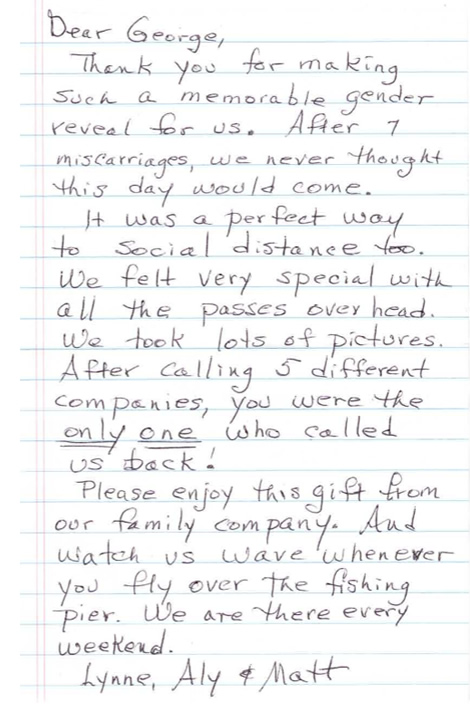 Dear George,
Thank you for making
such a memorable gender
reveal for us. After 7
miscarriages, we never thought
this day would come.
It was a perfect way
to social distance too.
We felt very special with
all the passes over head.
We took lots of pictures.
After calling 5 different
companies, you were the
only one who called
us back!
Please enjoy this gift from
our family company. And
watch us wave whenever
you fly over the fishing
pier. We are there every
weekend.
Lynne, Aly & Matt